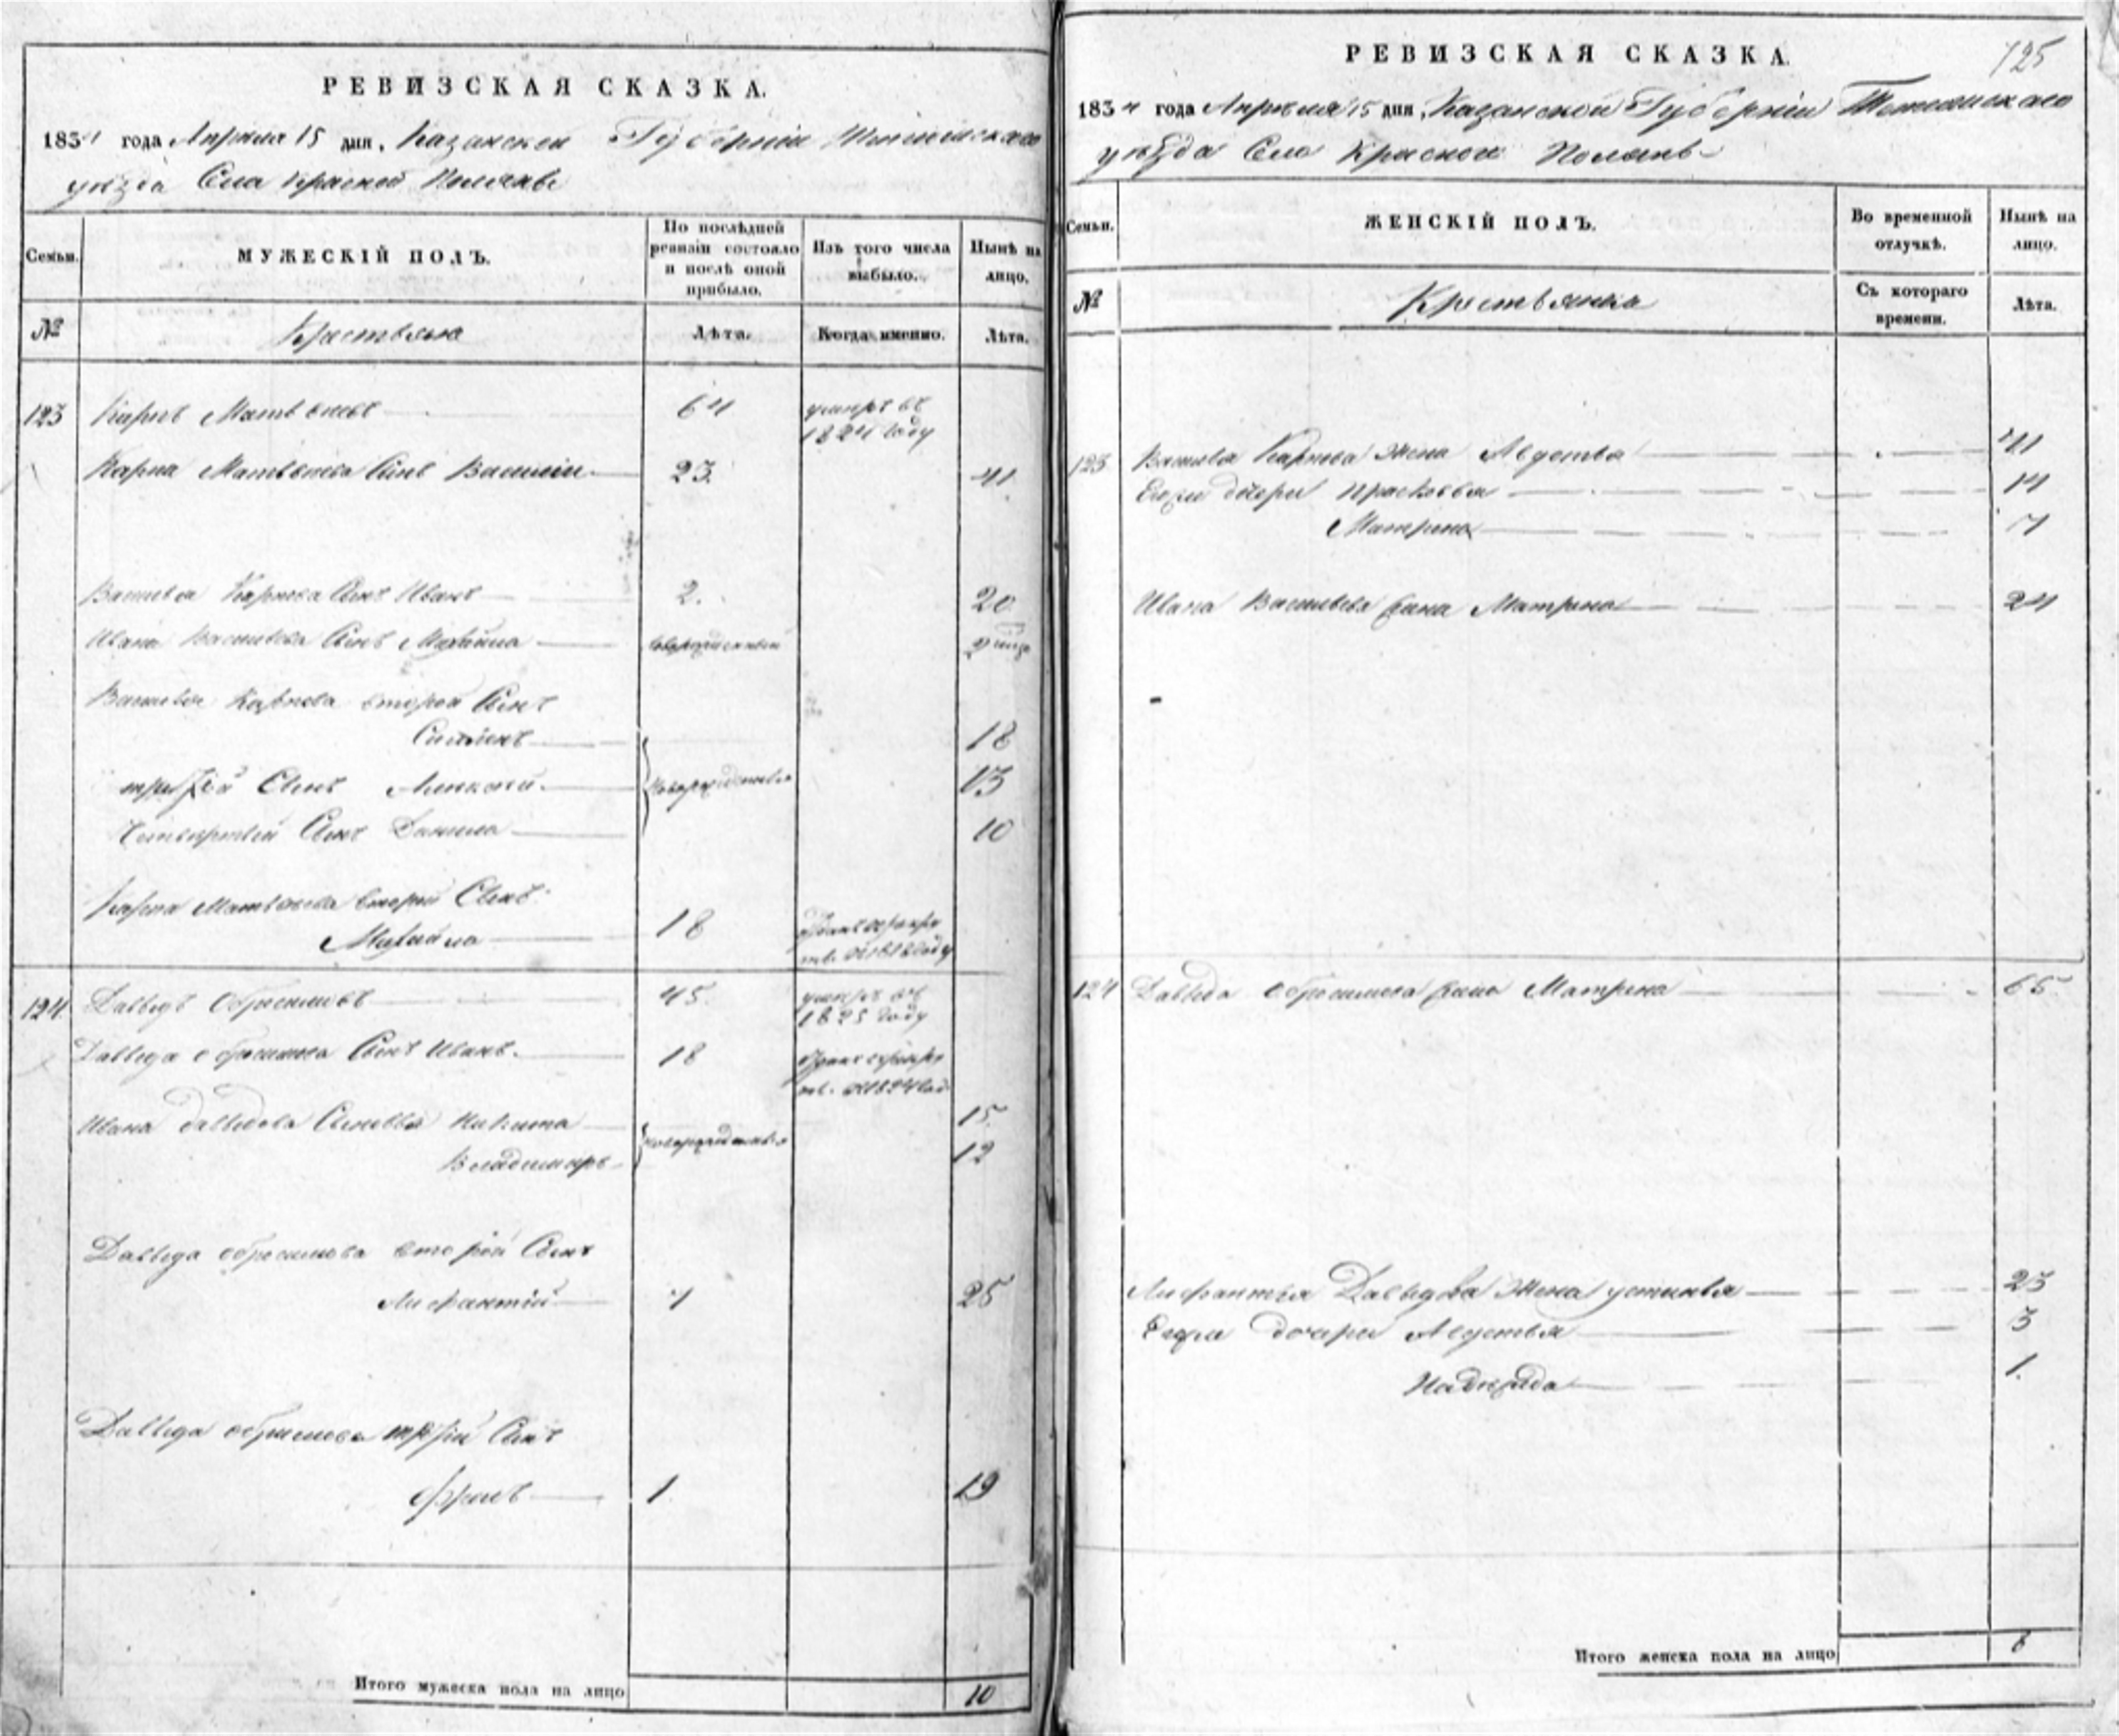 РЕВИЗСКАЯ СКАЗКА.
1834 года Апреля 15 дня, Казанской Губерніи Тетюшскаго
уѣзда Села Красной Поляны
Семьи.
МУЖЕСКІЙ ПОЛЪ.
По послѣдней ревизіи состояло и послѣ оной прибыло.
Изъ того числа выбыло.
Нынѣ на лицо.
№
Крестьяне
Лѣта.
Когда именно.
Лѣта.
123 Карпъ Матвеевъ 64 умеръ въ
1824 году
Карпа Матвеева Сынъ Василей 23. 41.
Василья Карпова Сынъ Иванъ 2. 20
Ивана Васильева Сынъ Михайла новорожденный
Василья Карпова второй Сынъ
18
третій Сынъ Алексей новорожденные 13
Четвертый Сынъ Данила 10
Карпа Матвеева второй Сынъ
Михайла 18 отданъ в рекру
ты въ 1818 году
124. Давыдъ Обросимовъ 45. умеръ въ
1825 году
Давыда Обросимова Сынъ Иванъ. 18 отданъ в рекру
ты в 1824 год
Ивана Давыдова Сыновья Никита новорожденные 15.
Владимиръ 12
Давыда Обросимова второй Сынъ
7 25
Давыда Обросимова третій Сынъ
Фролъ 1. 19
Итого мужеска пола на лицо 10
РЕВИЗСКАЯ СКАЗКА.
125
1834 года Апреля 15 дня, Казанской Губерніи Тетюшскаго
уѣзда Села Красной Поляны
Семьи.
ЖЕНСКІЙ ПОЛЪ.
Во временной отлучкѣ.
Нынѣ на лицо.
№
Крестьянки
Съ котораго времени.
Лѣта.
123 Василья Карпова Жена Авдотья 41
Егоже дочери Прасковья 14
Матрена 7
Ивана Васильева Жена Матрена 24
124 Давыда Обросимова Жена Матрена 65
Давыдова Жена Устинья 23
Егоже дочери Авдотья 3
Надежда 1.
Итого женска пола на лицо 8